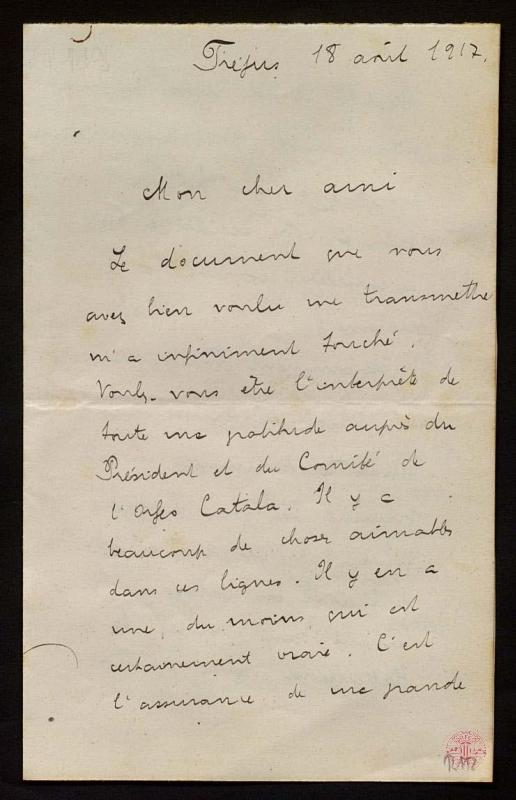 Fréjus 18 avril 1917.
Mon cher ami
Le document que vous
avez bien voulu me transmettre
m'a infiniment touché.
Voulez-vous être l'interprète de
toute ma gratitude auprès du
Président et du Comité de
l'Orfeo Catala. Il y a
beaucoup de choses aimables
dans ces lignes. Il y en a
une, du moins, qui est
certainement vraie. C'est
l'assurance de ma grande